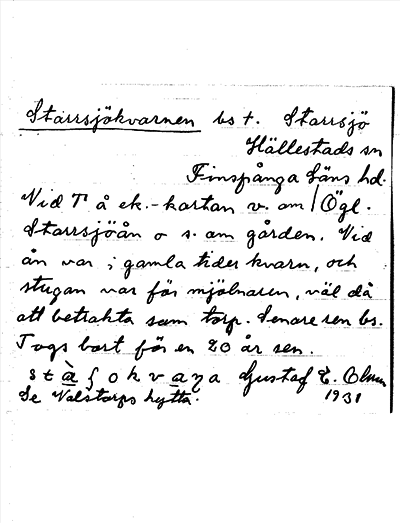 Starrsjökvarnen bs t. Starrsjö
Hällestads sn
Finspånga Läns hd.
Vid T å ek.-kartan v. om / Ögl.
Starrsjöån o s. om gården. Vid
ån var i gamla tider kvarn, och
stugan var för mjölnaren, väl då
att betrakta som torp. Senare ren bs.
Togs bort för en 20 år sen.
Gustaf E.
Se Valstorps hytta. 1931